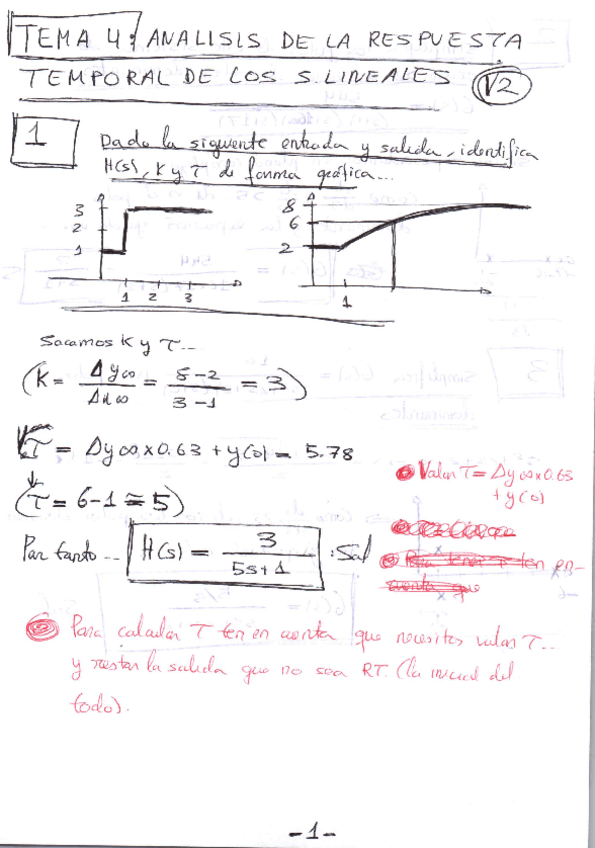 TEMA 4: ANALISIS DE LA RESPUESTA
TEMPORAL DE LOS S. LINEALES V2
1 Dado la siguiente entrada y salida, identifica
H(s), K y T de forma gráfica...
3
2
1
1 2 3
8
6
2
1
Sacamos K y T...
(K = Δy∞ / Δu∞ = 8-2 / 3-1 = 3)
T = Δy∞ x 0.63 + y(0) = 5.78
(T = 6-1 ≅ 5)
Por tanto... H(s) = 3 / 5s+1 : Sol
Valor T = Δy∞ x 0.63
+ y(0)
Para calcular T ten en cuenta que necesitas valor T...
y restar la salida que no sea RT. (la inicial del
todo).
-1-